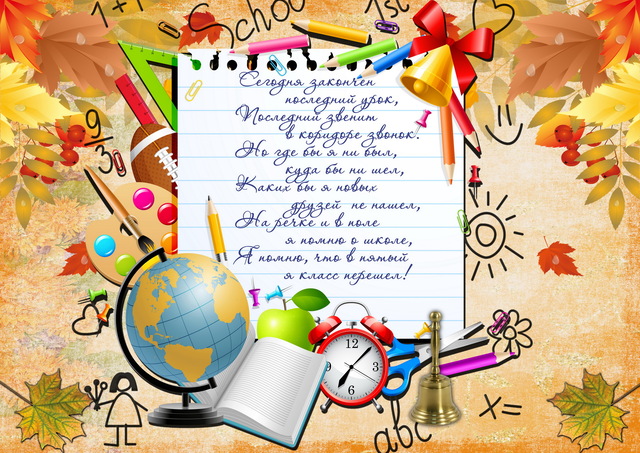 1+1
School
1st
Сегодня закончен
последний урок,
Последний звенит
в коридоре звонок.
Но где бы я ни был,
куда бы ни шел,
Каких бы я новых
друзей не нашел,
На речке и в поле
я помню о школе,
Я помню, что в пятый
я класс перешел!
9/3
12
abc
x=